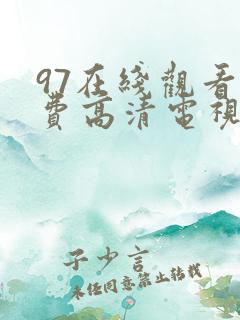 97在綫觀看
費高清電視
子少言
未經同意禁止转载